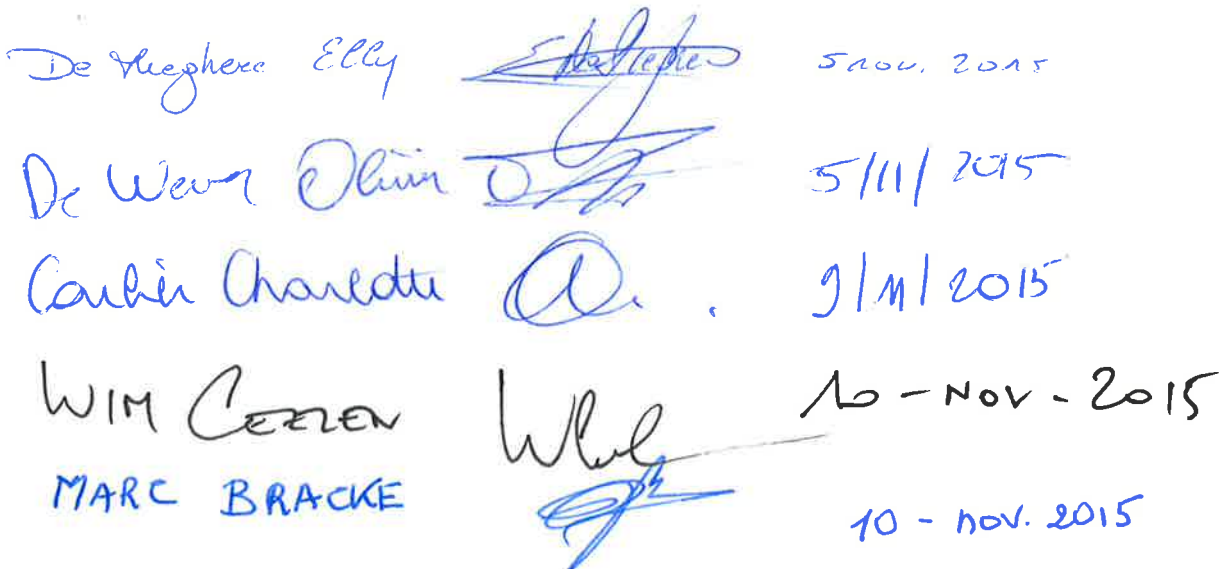 De Vlieghere Elly 5 nov. 2015
De Wever Olivier 5/11/2015
Charlotte 9/11/2015
WIM CEELEN 10-NOV-2015
MARC BRACKE 10-nov. 2015